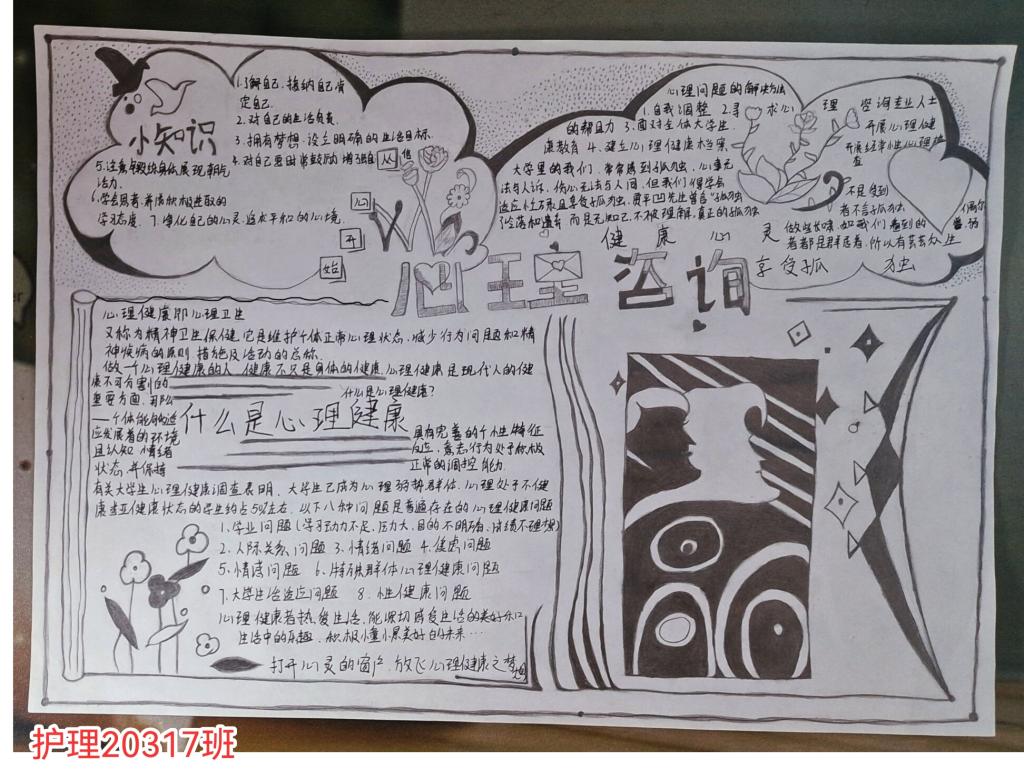 小知识
1.了解自己、接纳自己肯
定自己.
2.对自己的生活负责.
3.拥有梦想.设立明确的生活目标.
4.对自己要时常鼓励增强自
信
5.注重
身体展现朝气
活力.
6.学会思考.养成积极进取的
学习态度. 7.净化自己的心灵.追求平和的心境.
从
心
开
始
心理问题的解决方法
1.自我调整 2.寻求心理咨询专业人士
的帮助 3.面对全体大学生.开展心理健
康教育 4.建立心理健康档案.
开展经常性心理
查
大学里的我们.常常感到孤独.心事无
法与人诉.伤心无法与人问.但我们得学会
适应
享受孤独.贾平凹先生曾言"孤独
不是受到
了冷落和遗弃.而是无知己.不被理解.真正的孤独
者不言孤独.偶尔
做些长啸.如我们看到的兽.
者都是群居者.所以有芸芸众生
健康心灵
享受孤独
心理咨询
心理健康即心理卫生
又称为精神卫生保健.它是维护个体正常心理状态.减少行为问题和精
神疾病的原则.措施及活动的总称.
做一个心理健康的人 健康不只是身体的健康.心理健康是现代人的健
康不可分割的
重要方面.那么
什么是心理健康?
什么是心理健康
一个体能够适
应发展着的环境
具有完善的个性特征
且认知.情绪
反应、意志行为处于积极
状态.并保持
正常的调控能力.
有关大学生心理健康调查表明.大学生已成为心理弱势群体.心理处于不健
康或亚健康状态的学生约占
左右.以下八种问题是普遍存在的心理健康问题
1.学业问题(学习动力不足.压力大.目的不明确.成绩不理想)
2.人际关系问题 3.情绪问题 4.焦虑问题
5.情感问题 6.特殊群体心理健康问题
7.大学生活适应问题 8.性健康问题
心理健康者热爱生活.能深切感受生活的美好和
生活中的乐趣.积极憧憬美好的未来…
打开心灵的窗户.放飞心理健康之梦想
护理20317班